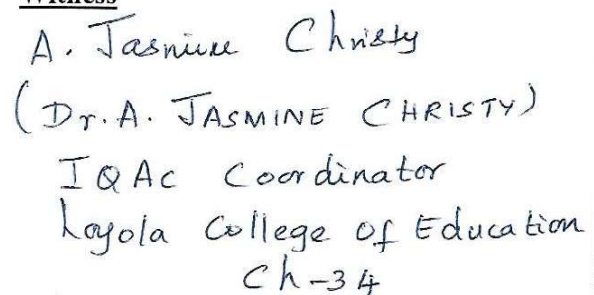 Witness
A. Jasmine Christy
(Dr. A. JASMINE CHRISTY)
IQAC Coordinator
Loyola College of Education
Ch-34